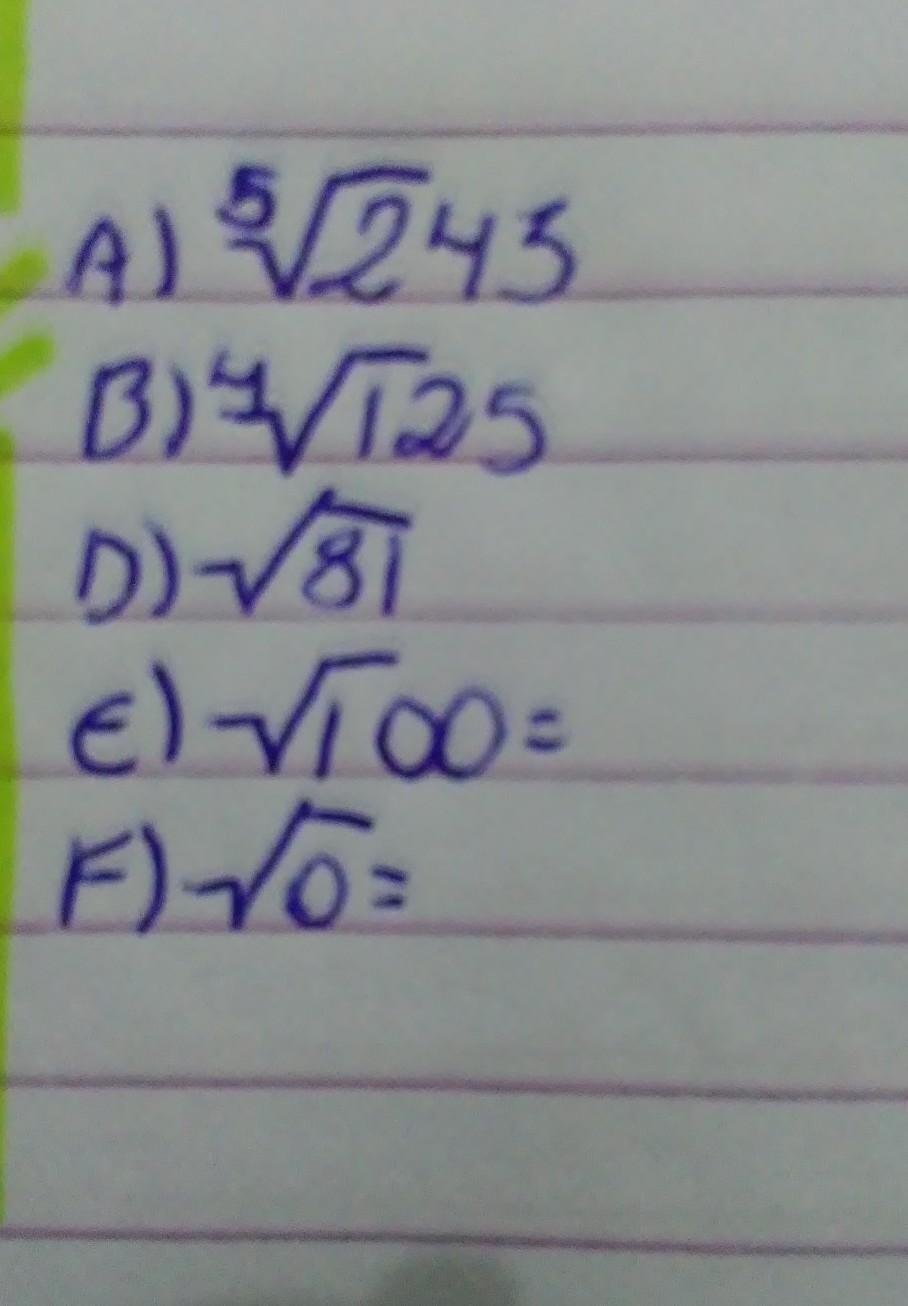 A) ⁵√243
B) ⁴√125
D) √81
E) √100=
F) √0=